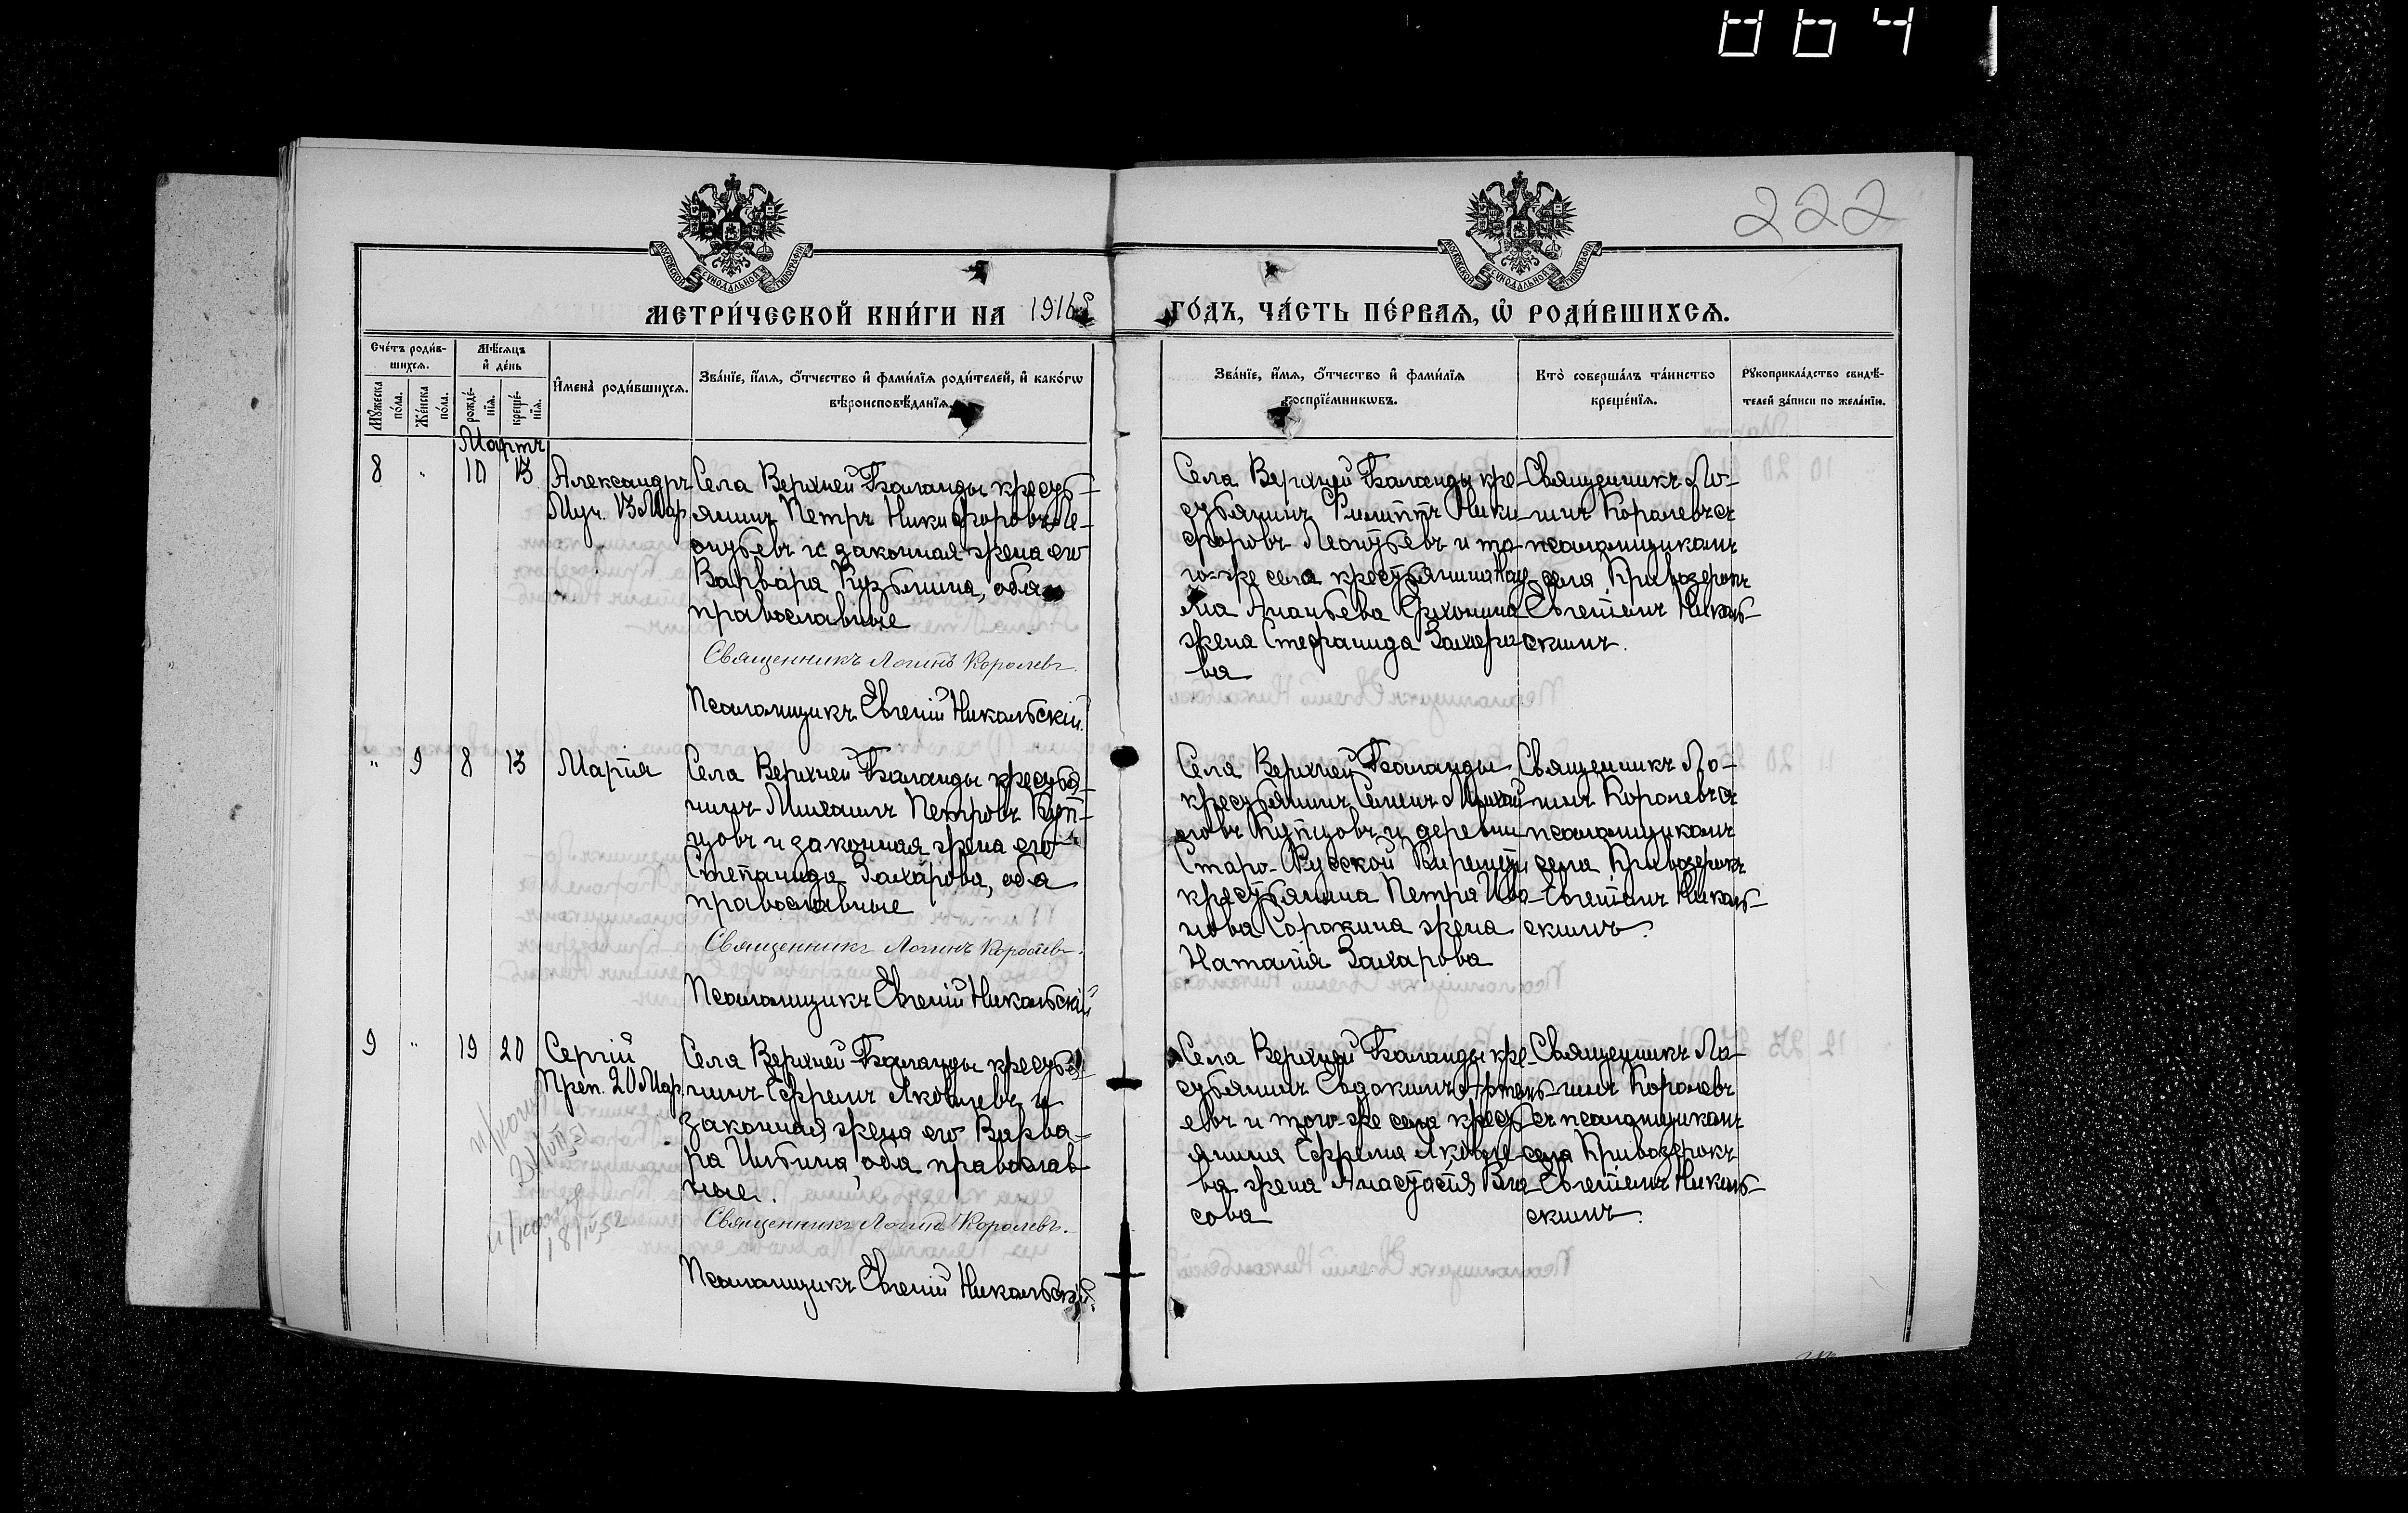 864
222
МОСКОВСКОЙ СѴНОДАЛЬНОЙ ТИПОГРАФІИ
МОСКОВСКОЙ СѴНОДАЛЬНОЙ ТИПОГРАФІИ
МЕТРИ́ЧЕСКОЙ КНИ́ГИ НА 1916й
ГО́ДЪ, ЧА́СТЬ ПЕ́РВАѦ, Ѡ҆ РОДИ́ВШИХСѦ.
Сче́тъ роди́в-
шихсѧ.
Мꙋ́жеска по́ла.
Же́нска по́ла.
Мѣ́сѧцъ
и҆ де́нь
рожде́-
нїѧ.
креще́-
нїѧ.
И҆мена̀ роди́вшихсѧ.
Зва́нїе, и҆́мѧ, ѻ҆́тчество и҆ фами́лїѧ роди́телей, и҆ како́гѡ
вѣроисповѣ́данїѧ.
Зва́нїе, и҆́мѧ, ѻ҆́тчество и҆ фами́лїѧ
воспрїе́мникѡвъ.
Кто̀ соверша́лъ та́инство
креще́нїѧ.
Рꙋкоприкла́дство свидѣ́-
телей за́писи по жела́нїю.
Мартъ
8 " 10 13
Александръ
Муч. 13 Мар.
Села Верхней Баланды кресть-
янинъ Петръ Никифоровъ Ле-
онтьевъ и законная жена его
Варвара Кузьмина, оба
православные
Священникъ Логинъ Королевъ.
Псаломщикъ Евгеній Никольскій.
Села Верхней Баланды кре-
стьянинъ Филиппъ Ники-
форовъ Леонтьевъ и то-
го-же села крестьянина
Ананьева жена Стефанида Захаро-
ва
Священникъ Ло-
гинъ Королевъ съ
псаломщикомъ
села Кривозерокъ
Евгеніемъ Николь-
скимъ.
" 9 8 13
Марія
Села Верхней Баланды крестья-
нинъ Михаилъ Петровъ Куп-
цовъ и законная жена его
Степанида Захарова, оба
православные
Священникъ Логинъ Королевъ.
Псаломщикъ Евгеній Никольскій
Села Верхней Баланды
крестьянинъ Семенъ Михай-
ловъ Купцовъ и деревни
Старо-Русской Киремети
крестьянина Петра Ива-
нова Сорокина жена
Наталія Захарова
Священникъ Ло-
гинъ Королевъ съ
псаломщикомъ
села Кривозерокъ
Евгеніемъ Николь-
скимъ.
9 " 19 20
Сергій
Преп. 20 Мар.
Села Верхней Баланды крестья-
нинъ Ефремъ Яковлевъ и
законная жена его Варва-
ра Ильина, оба православ-
ные.
Священникъ Логинъ Королевъ.
Псаломщикъ Евгеній Никольскій.
Села Верхней Баланды кре-
стьянинъ Евдокимъ Артемь-
евъ и того-же села кресть-
янина Ефрема Яковле-
ва жена Анастасія Вла-
сова
Священникъ Ло-
гинъ Королевъ
съ псаломщикомъ
села Кривозерокъ
Евгеніемъ Николь-
скимъ.
18/IV 52